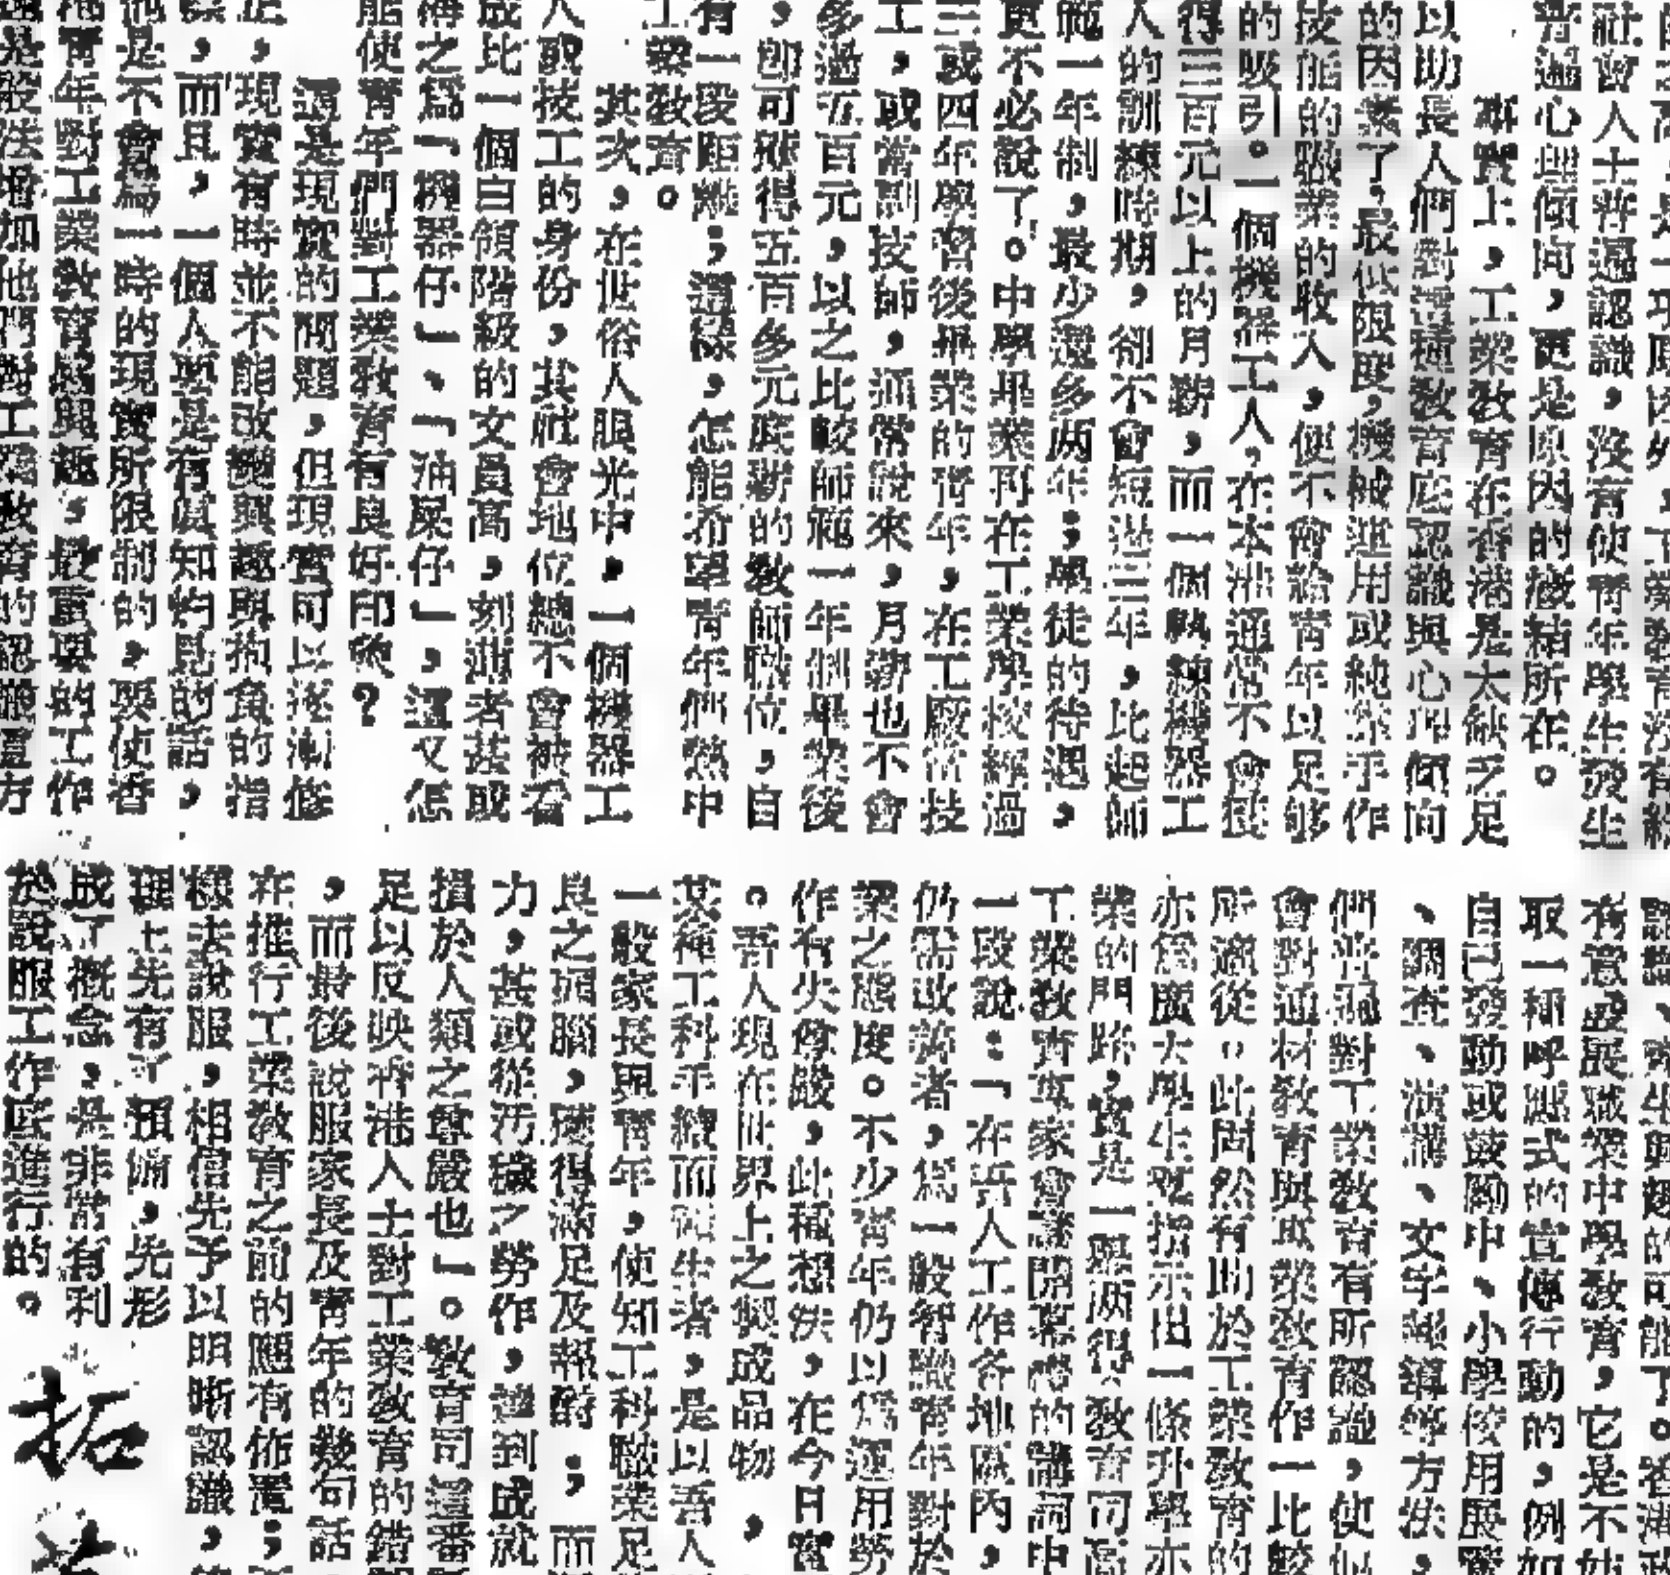 社會人士普遍認識，沒有使青年學生發生
普遍心理傾向，更是原因的癥結所在。
事實上，工業教育在香港是太缺乏足
以助長人們對這種教育底認識與心理傾向
的因素了，最低限度，機械運用或純粹手作
技能的職業的收入，便不會給青年以足够
的吸引。一個機器工人，在本港通常不會獲
得三百元以上的月薪，而一個熟練機器工
人的訓練時期，卻不會短過三年，比起師
範一年制，最少還多两年；學徒的待遇，
更不必說了。中學畢業再在工業學校經過
三或四年學習後畢業的青年，在工廠當技
工，或當副技師，通常說來，月薪也不會
多過五百元，以之比較師範一年制畢業後
，卽可獲得五百多元底薪的教師職位，自
有一段距離；這樣，怎能希望青年們熱中
工業教育。
其次，在世俗人眼光中，一個機器工
人或技工的身份，其社會地位總不會被看
成比一個白領階級的文員高，刻薄者甚或
侮之爲「機器仔」、「油屎仔」，這又怎
能使青年們對工業教育有良好印象？
這是現實的問題，但現實可以逐漸修
正，現實有時並不能改變興趣與抱負的指
標，而且，一個人要是有眞知灼見的話，
他是不會爲一時的現實所限制的，要使香
港青年對工業教育感興趣，最重要的工作
還是設法增加他們對工業教育的認識這方
有意發展職業中學教育，它是不
取一種呼應式的宣傳行動的，例如
自己發動或鼓勵中、小學校用展覽
、調查、演講、文字報導等方法，
們普遍對工業教育有所認識，使他
會對通材教育與職業教育作一比較
所適從。此固然有助於工業教育的
亦爲廣大學生羣指示出一條升學亦
業的門路，實是一舉两得。教育司高
工業教育專家會議開幕時的講詞中
一段說：「在吾人工作各地區內，
仍需改善者，爲一般智識青年對於
業之態度。不少青年仍以爲運用勞
作有失尊嚴，此種想法，在今日實
。吾人現在世界上之製成品物，
某種工科手續而產生者，是以吾人
一般家長與青年，使知工科職業足
良之頭腦，獲得滿足及報酬；而
力，甚或從汚穢之勞作，達到成就
損於人類之尊嚴也」。教育司這番
足以反映香港人士對工業教育的錯
，而最後說服家長及青年的幾句話
在推行工業教育之前的應有佈置；
樣去說服，相信先予以明晰認識，
理上先有了預備，先形
成了概念，是非常有利
於說服工作底進行的。
拓